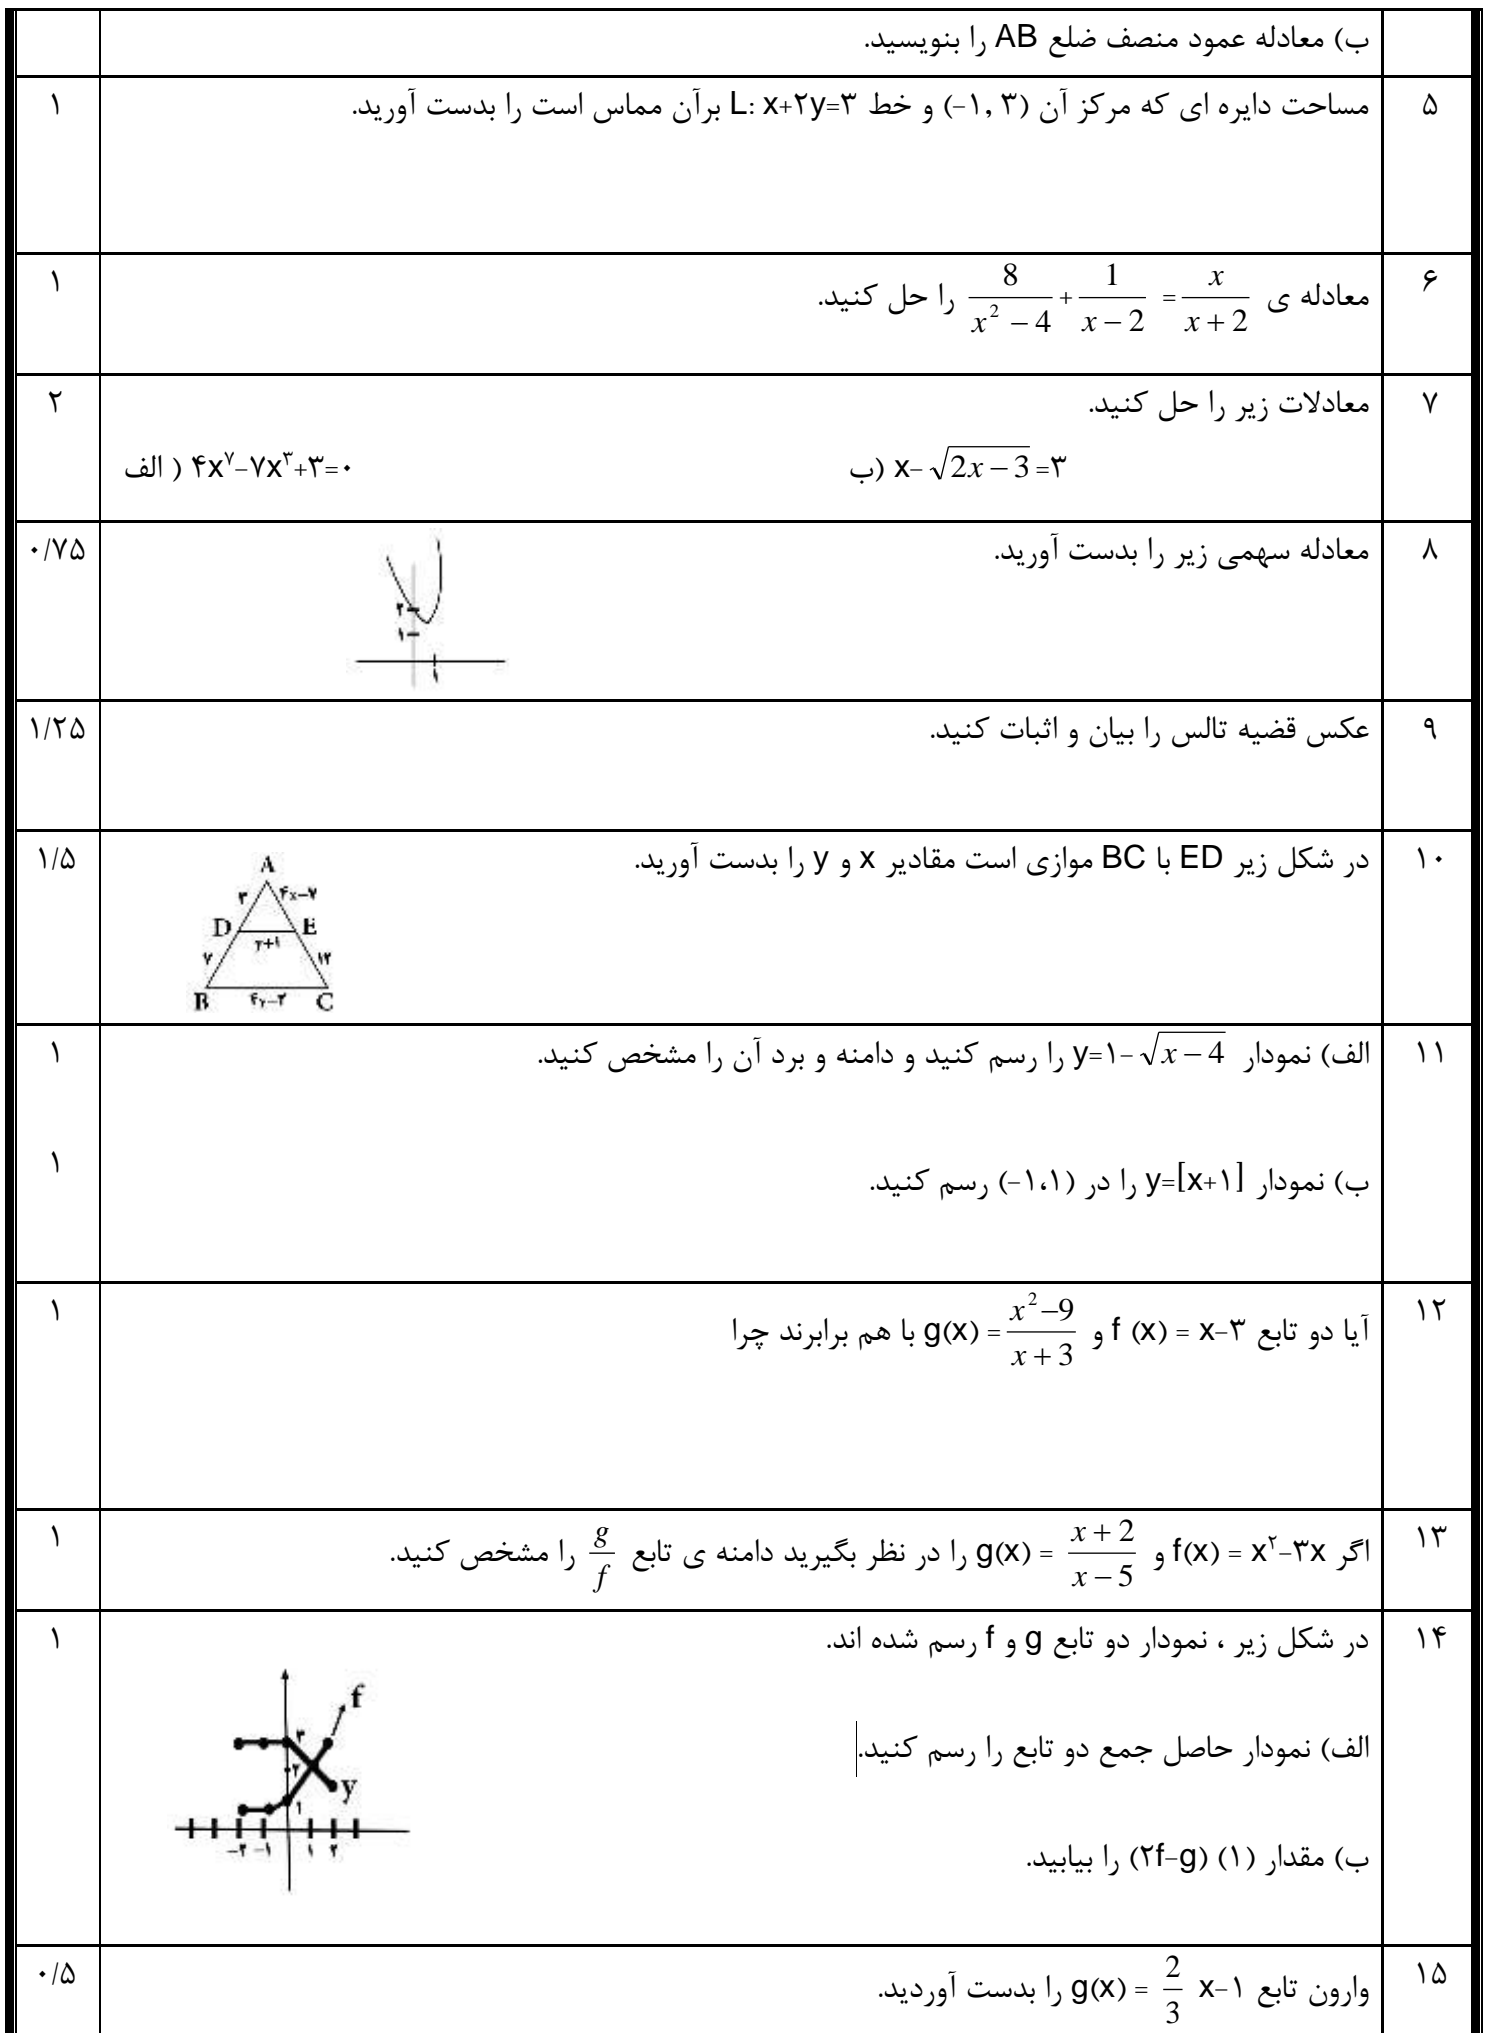 ب) معادله عمود منصف ضلع AB را بنویسید.
۵ مساحت دایره ای که مرکز آن (-۱, ۳) و خط L: x+۲y=۳ برآن مماس است را بدست آورید. ۱
۶ معادله ی 8/(x²−4) + 1/(x−2) = x/(x+2) را حل کنید. ۱
۷ معادلات زیر را حل کنید. ۲
ب) x-√(2x−3)=۳
الف ) ۴x^۷-۷x^۳+۳=۰
۸ معادله سهمی زیر را بدست آورید. ۰/۷۵
۲
۱
۱
۹ عکس قضیه تالس را بیان و اثبات کنید. ۱/۲۵
۱۰ در شکل زیر ED با BC موازی است مقادیر x و y را بدست آورید. ۱/۵
A
۳ ۴x-۷
D E
y+۱
۷ ۱۲
B ۴y-۲ C
۱۱ الف) نمودار y=۱-√(x−4) را رسم کنید و دامنه و برد آن را مشخص کنید. ۱
ب) نمودار y=[x+۱] را در (-۱،۱) رسم کنید. ۱
۱۲ آیا دو تابع f (x) = x-۳ و g(x) = (x²−9)/(x+3) با هم برابرند چرا ۱
۱۳ اگر f(x) = x²-۳x و g(x) = (x+2)/(x−5) را در نظر بگیرید دامنه ی تابع g/f را مشخص کنید. ۱
۱۴ در شکل زیر ، نمودار دو تابع g و f رسم شده اند. ۱
الف) نمودار حاصل جمع دو تابع را رسم کنید.
ب) مقدار (۲f-g) (۱) را بیابید.
f
۳
۲
y
۱
-۲ -۱ ۱ ۲
۱۵ وارون تابع g(x) = 2/3 x-۱ را بدست آوردید. ۰/۵